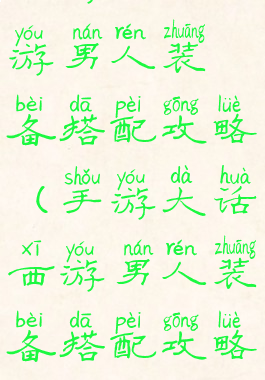 yóu nán rén zhuāng
游男人装
bèi dā pèi gōng lüè
备搭配攻略
shǒu yóu dà huà
（手游大话
xī yóu nán rén zhuāng
西游男人装
bèi dā pèi gōng lüè
备搭配攻略